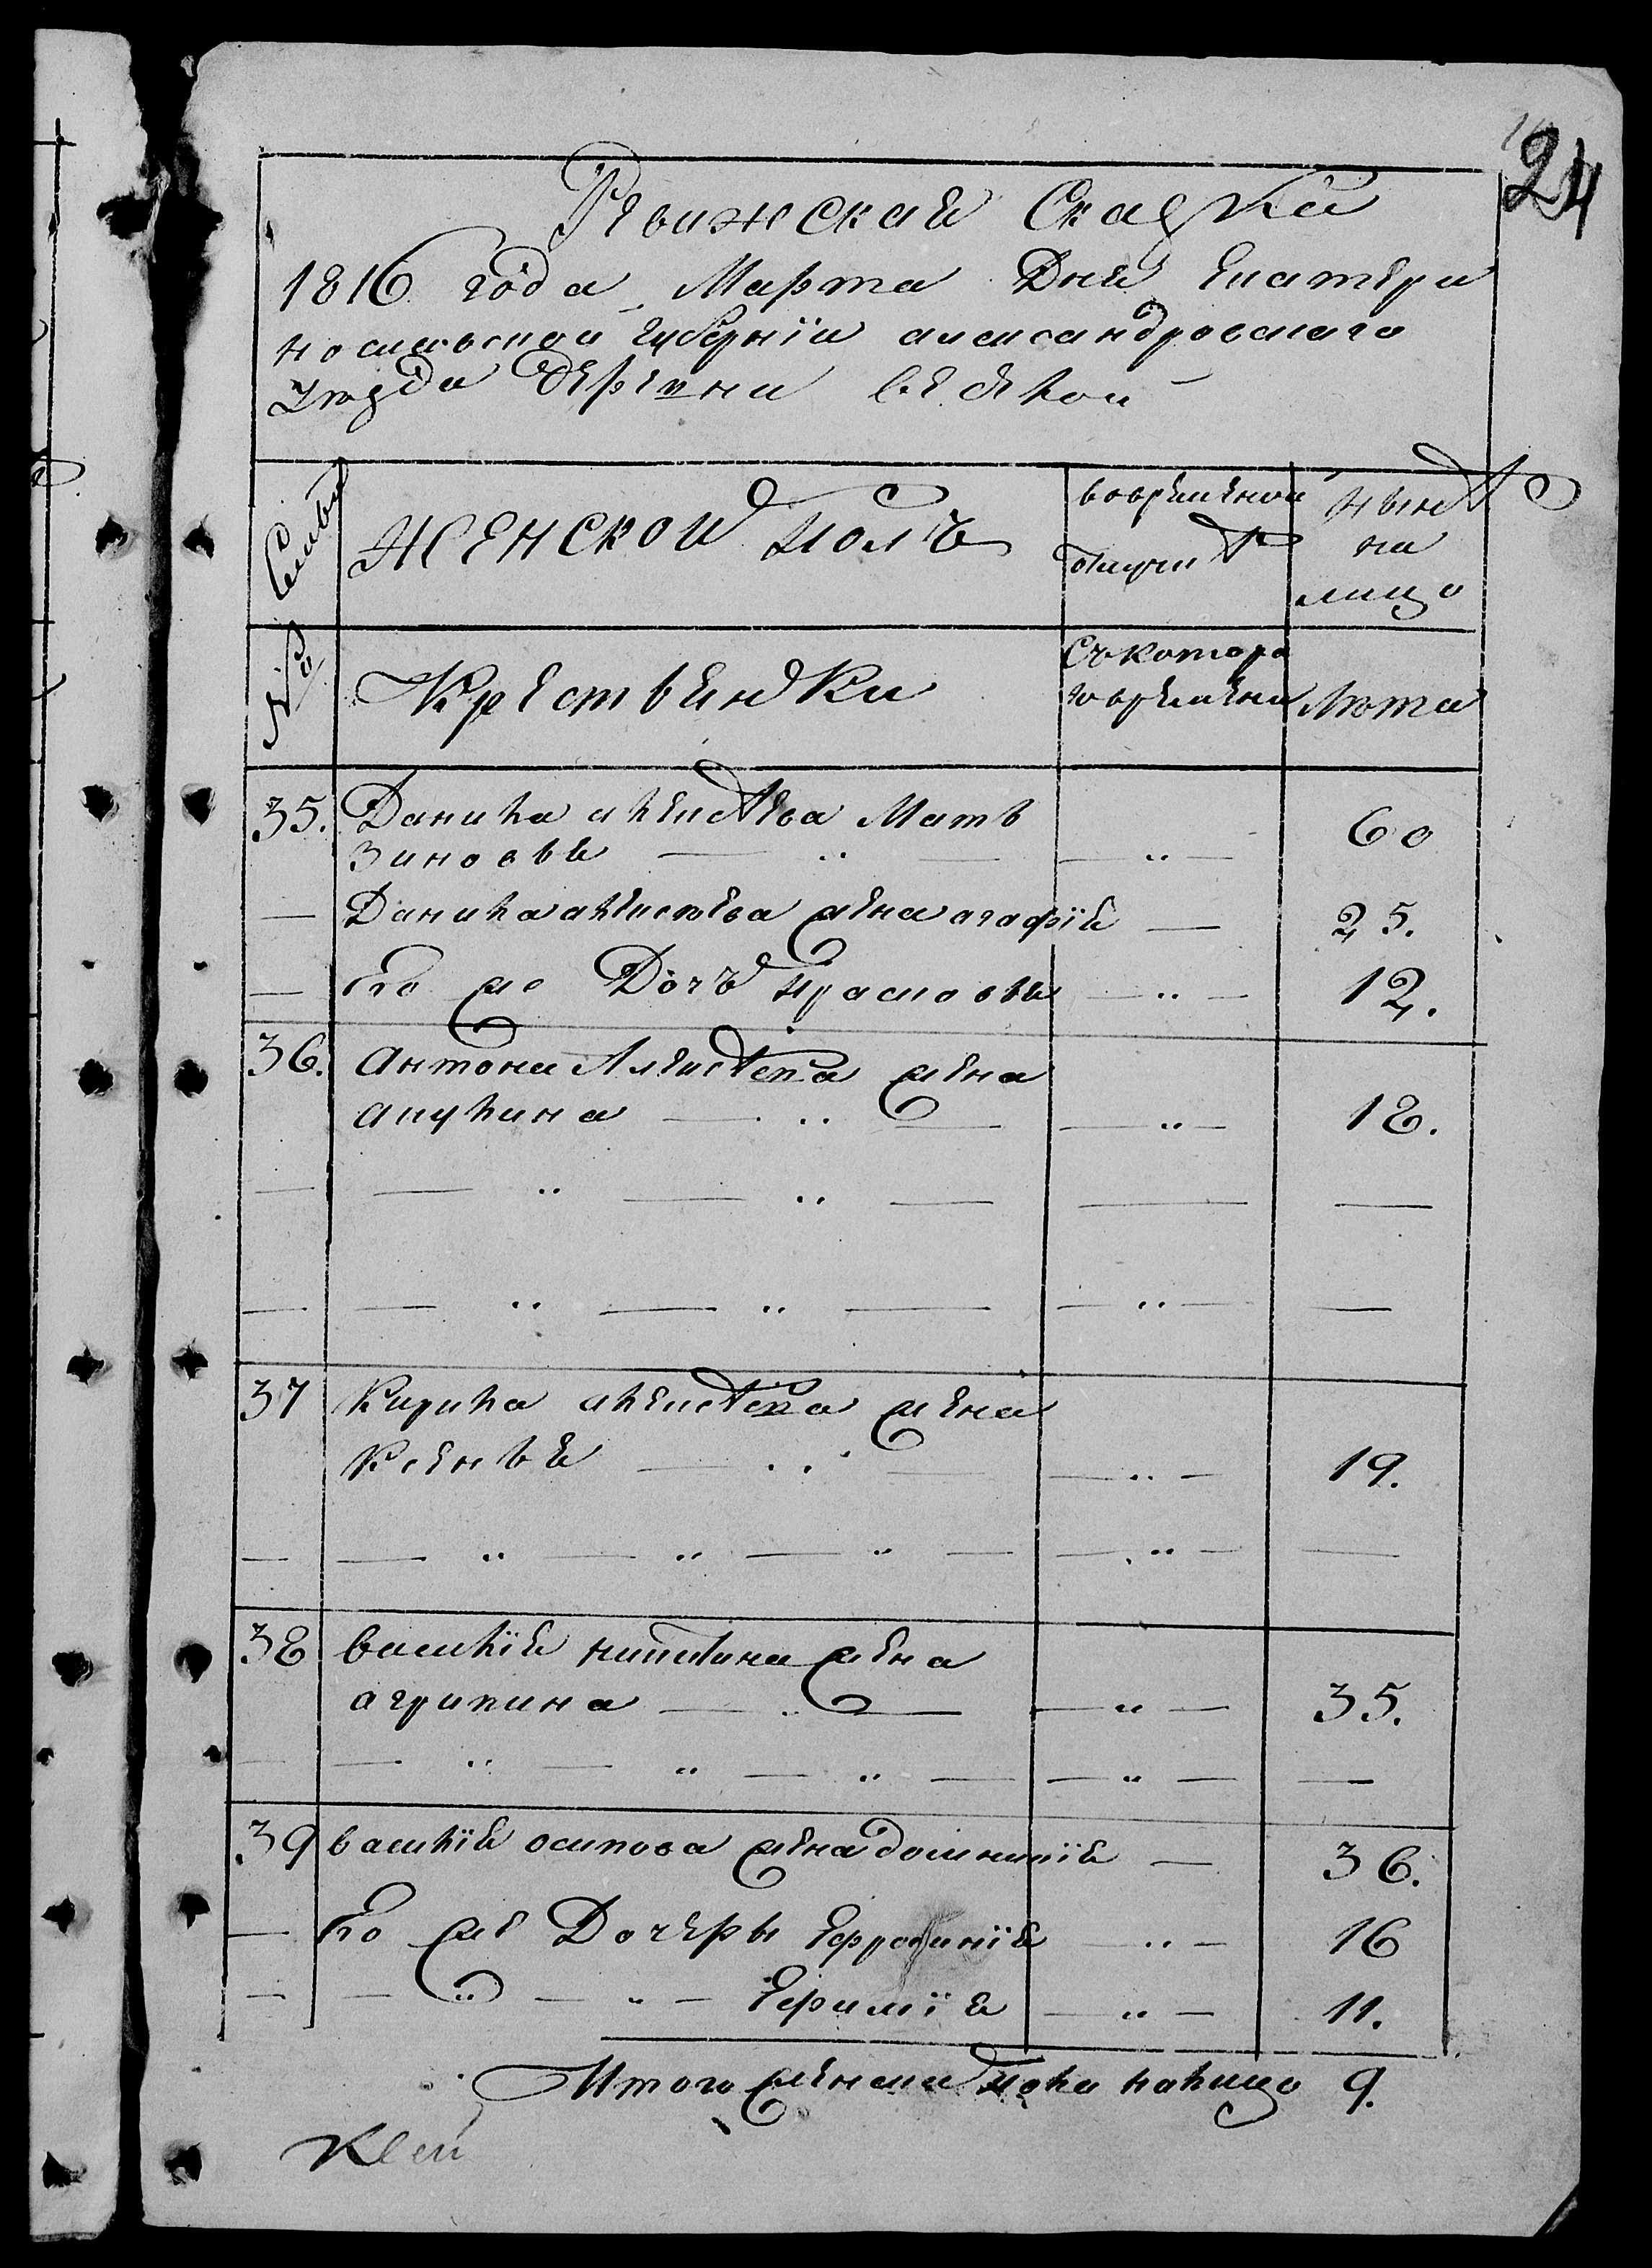 24
Ревижская Сказка
1816 года Марта Дня Екатери
нославской губернїи александровскаго
уезда деревни
Семьи
Женской полъ
вовременной
отлучкѣ
нынѣ
на
лицо
№
Крествянки
Съ котора
го времени
Лѣта
35. Данила алексѣева Мать
Зиновья — „ — — „ — 60
— Данила алексѣева жена агафїя — 25.
— Его же Дочъ прасковья — „ — 12.
36. Антона Алексѣева жена
акулина — „ — — „ — 18.
— — „ — „ — — —
— — „ — „ — — „ — —
37 Кирила алексѣева жена
Ксенья — „ — — „ — 19.
— — „ — „ — „ — — „ — —
38 василїя никитина жена
агрипина — „ — — „ — 35.
— — „ — „ — „ — — „ — —
39 василїя осипова жена домникїя — 36.
— Его же Дочеры Ефросинїя — „ — 16
— — „ — „ — Ефимїя — „ — 11.
Итого женска пола налицо 9.